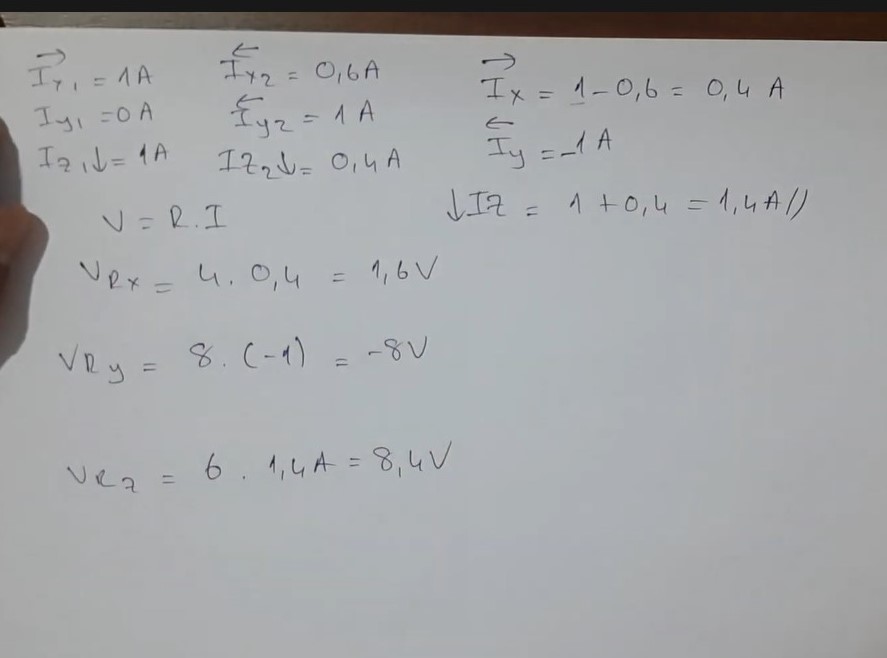 →Ix₁ = 1A
Iy₁ = 0A
Iz₁↓ = 1A
←Ix₂ = 0,6A
←Iy₂ = 1A
Iz₂↓ = 0,4A
→Ix = 1 - 0,6 = 0,4 A
←Iy = -1A
↓Iz = 1 + 0,4 = 1,4A//
V = R.I
VRx = 4. 0,4 = 1,6V
VRy = 8. (-1) = -8V
VRz = 6 . 1,4A = 8,4V